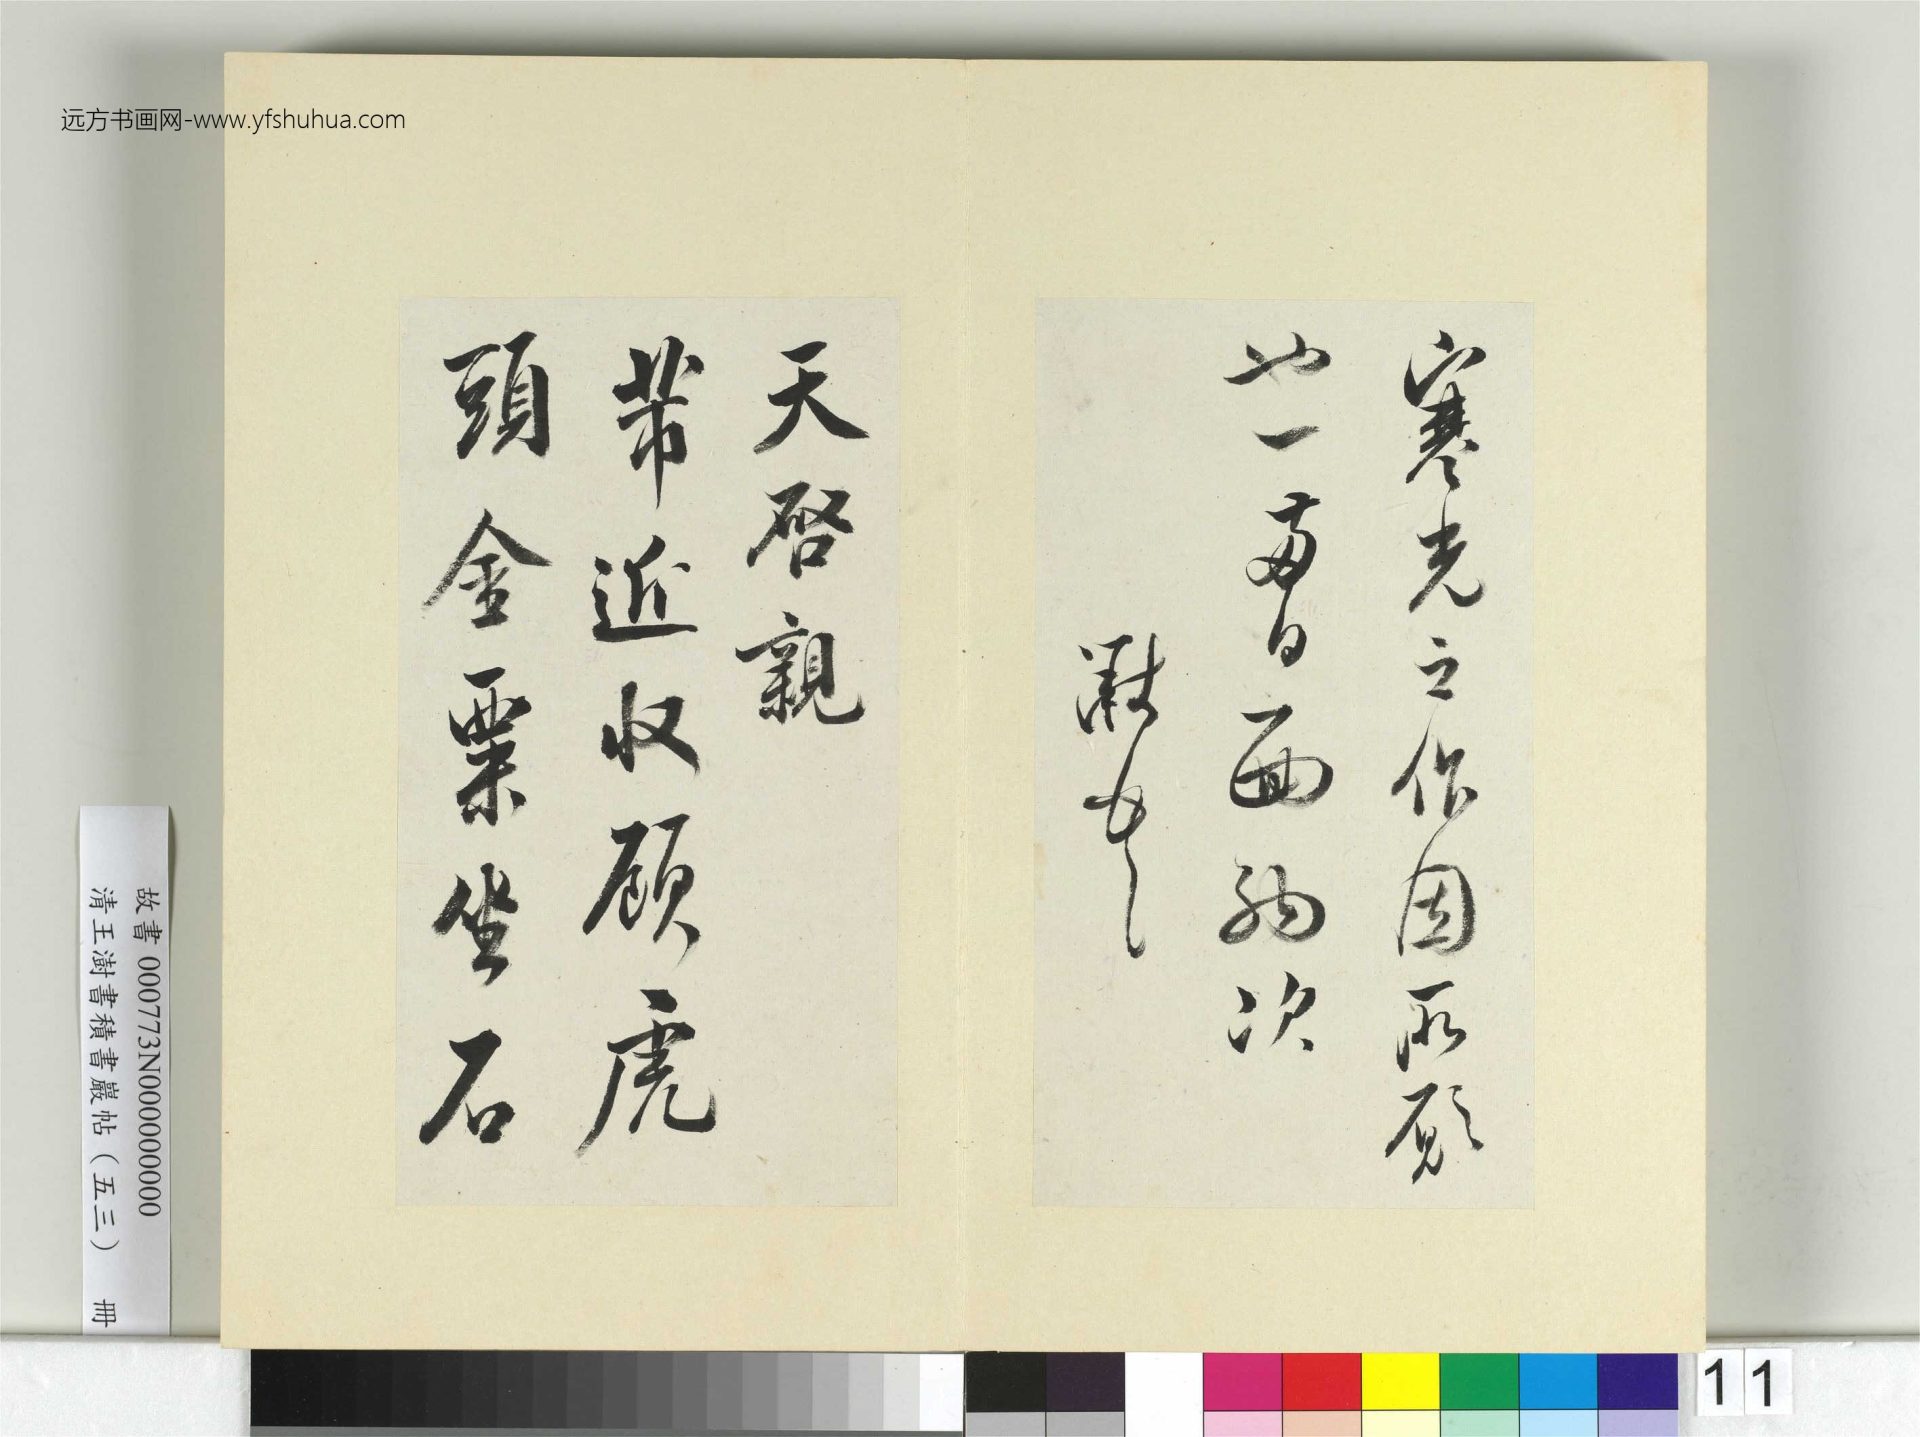 远方书画网-www.yfshuhua.com
寒光之作固所願
也一兩日
次
獻
天啓親
帶近收顧虎
頭金粟坐石
故書 000773N000000000
清王澍書積書巖帖（五三） 冊
11